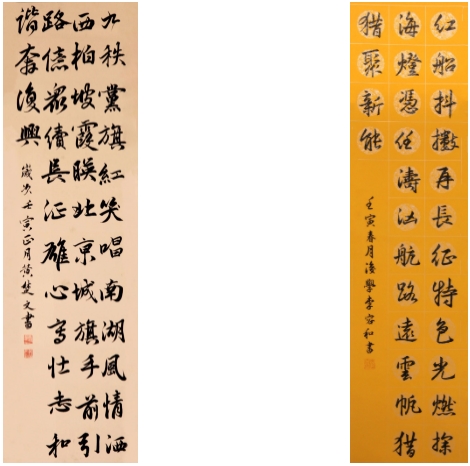 九秩黨旗紅笑唱南湖風情洒
西柏坡霞暎北京城旗手前引
路億眾續長征雄心寫壮志和
諧奔復興
歲次壬寅正月楚文書
紅船抖擻再長征特色光燃探
海燈憑任濤汹航路遠雲帆猎
猎聚新能
壬寅春月後學李容和書